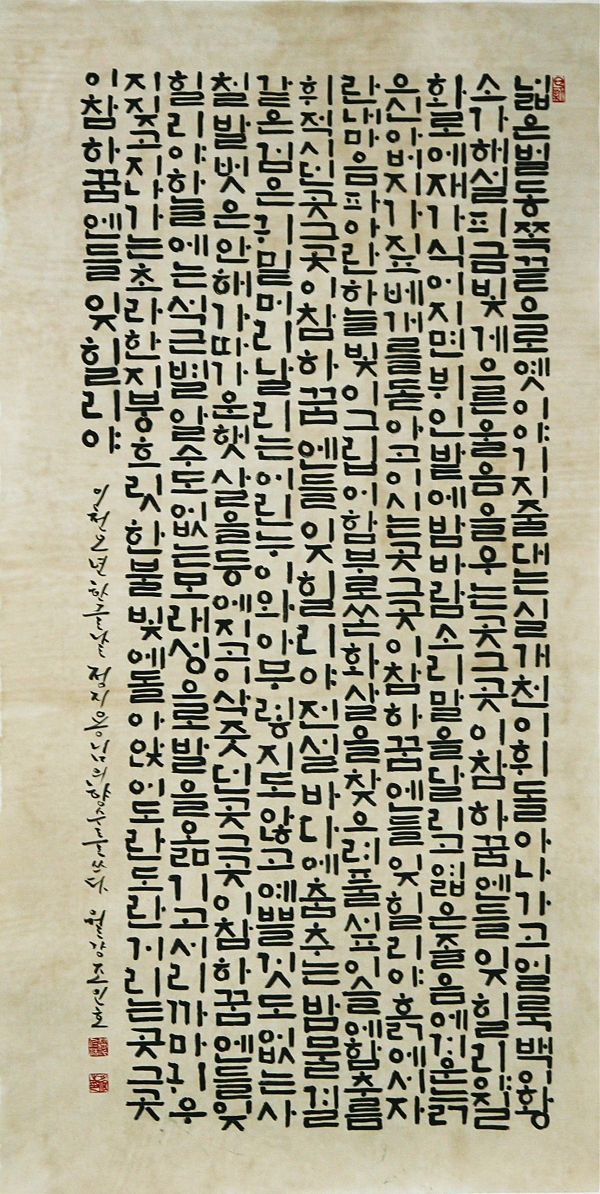 넓은벌동쪽끝으로옛이야기지줄대는실개천이휘돌아나가고얼룩백이황
소가해설피금빛게으른울음을우는곳그곳이참하꿈엔들잊힐리야질
화로에재가식어지면뷔인밭에밤바람소리말을달리고엷은졸음에겨운늙
은신아버지가짚베개를돋아고이시는곳그곳이참하꿈엔들잊힐리야흙에서자
란내마음파아란하늘빛이그립어함부로쏜화살을찾으려풀섶이슬에함추름
휘적시던곳그곳이참하꿈엔들잊힐리야전설바다에춤추는밤물결
같은검은귀밑머리날리는어린누이와아무렇지도않고예쁠것도없는사
철발벗은안해가따가운햇살을등에지고이삭줏던곳그곳이참하꿈엔들잊
힐리야하늘에는석근별알수도없는모래성으로발을옮기고서리까마귀우
지짖고지나가는초라한지붕흐릿한불빛에돌아앉어도란도란거리는곳그곳
이참하꿈엔들잊힐리야
이천오년한글날 정지용님의향수를쓰다 월강조인호